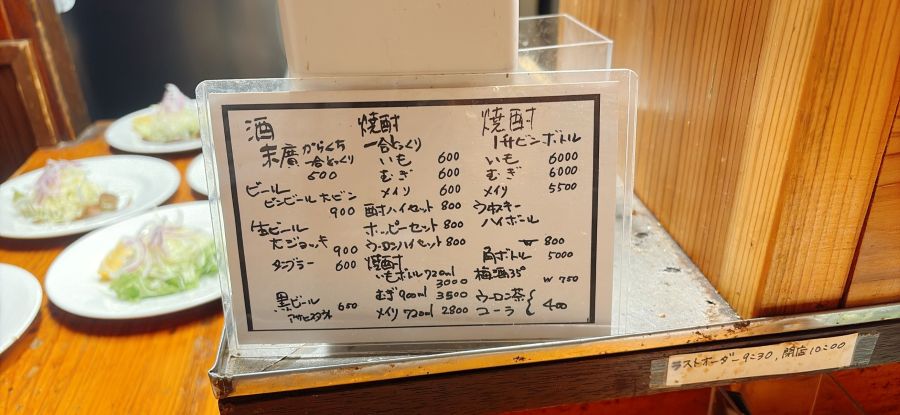 酒
末廣 からくち
一合とっくり
500
ビール
ビンビール大ビン
900
生ビール
大ジョッキ
900
タンブラー 600
黒ビール
650
焼酎
一合とっくり
いも 600
むぎ 600
メイリ 600
酎ハイセット 800
ホッピーセット 800
ウーロンハイセット 800
焼酎
いもボトル720ml
3000
むぎ900ml 3500
メイリ720ml 2800
焼酎
1升ビンボトル
いも 6000
むぎ 6000
メイリ 5500
ウヰスキー
ハイボール
W 800
角ボトル 5000
梅酒35°
W 750
ウーロン茶
コーラ 400
ラストオーダー9:30, 閉店10:00